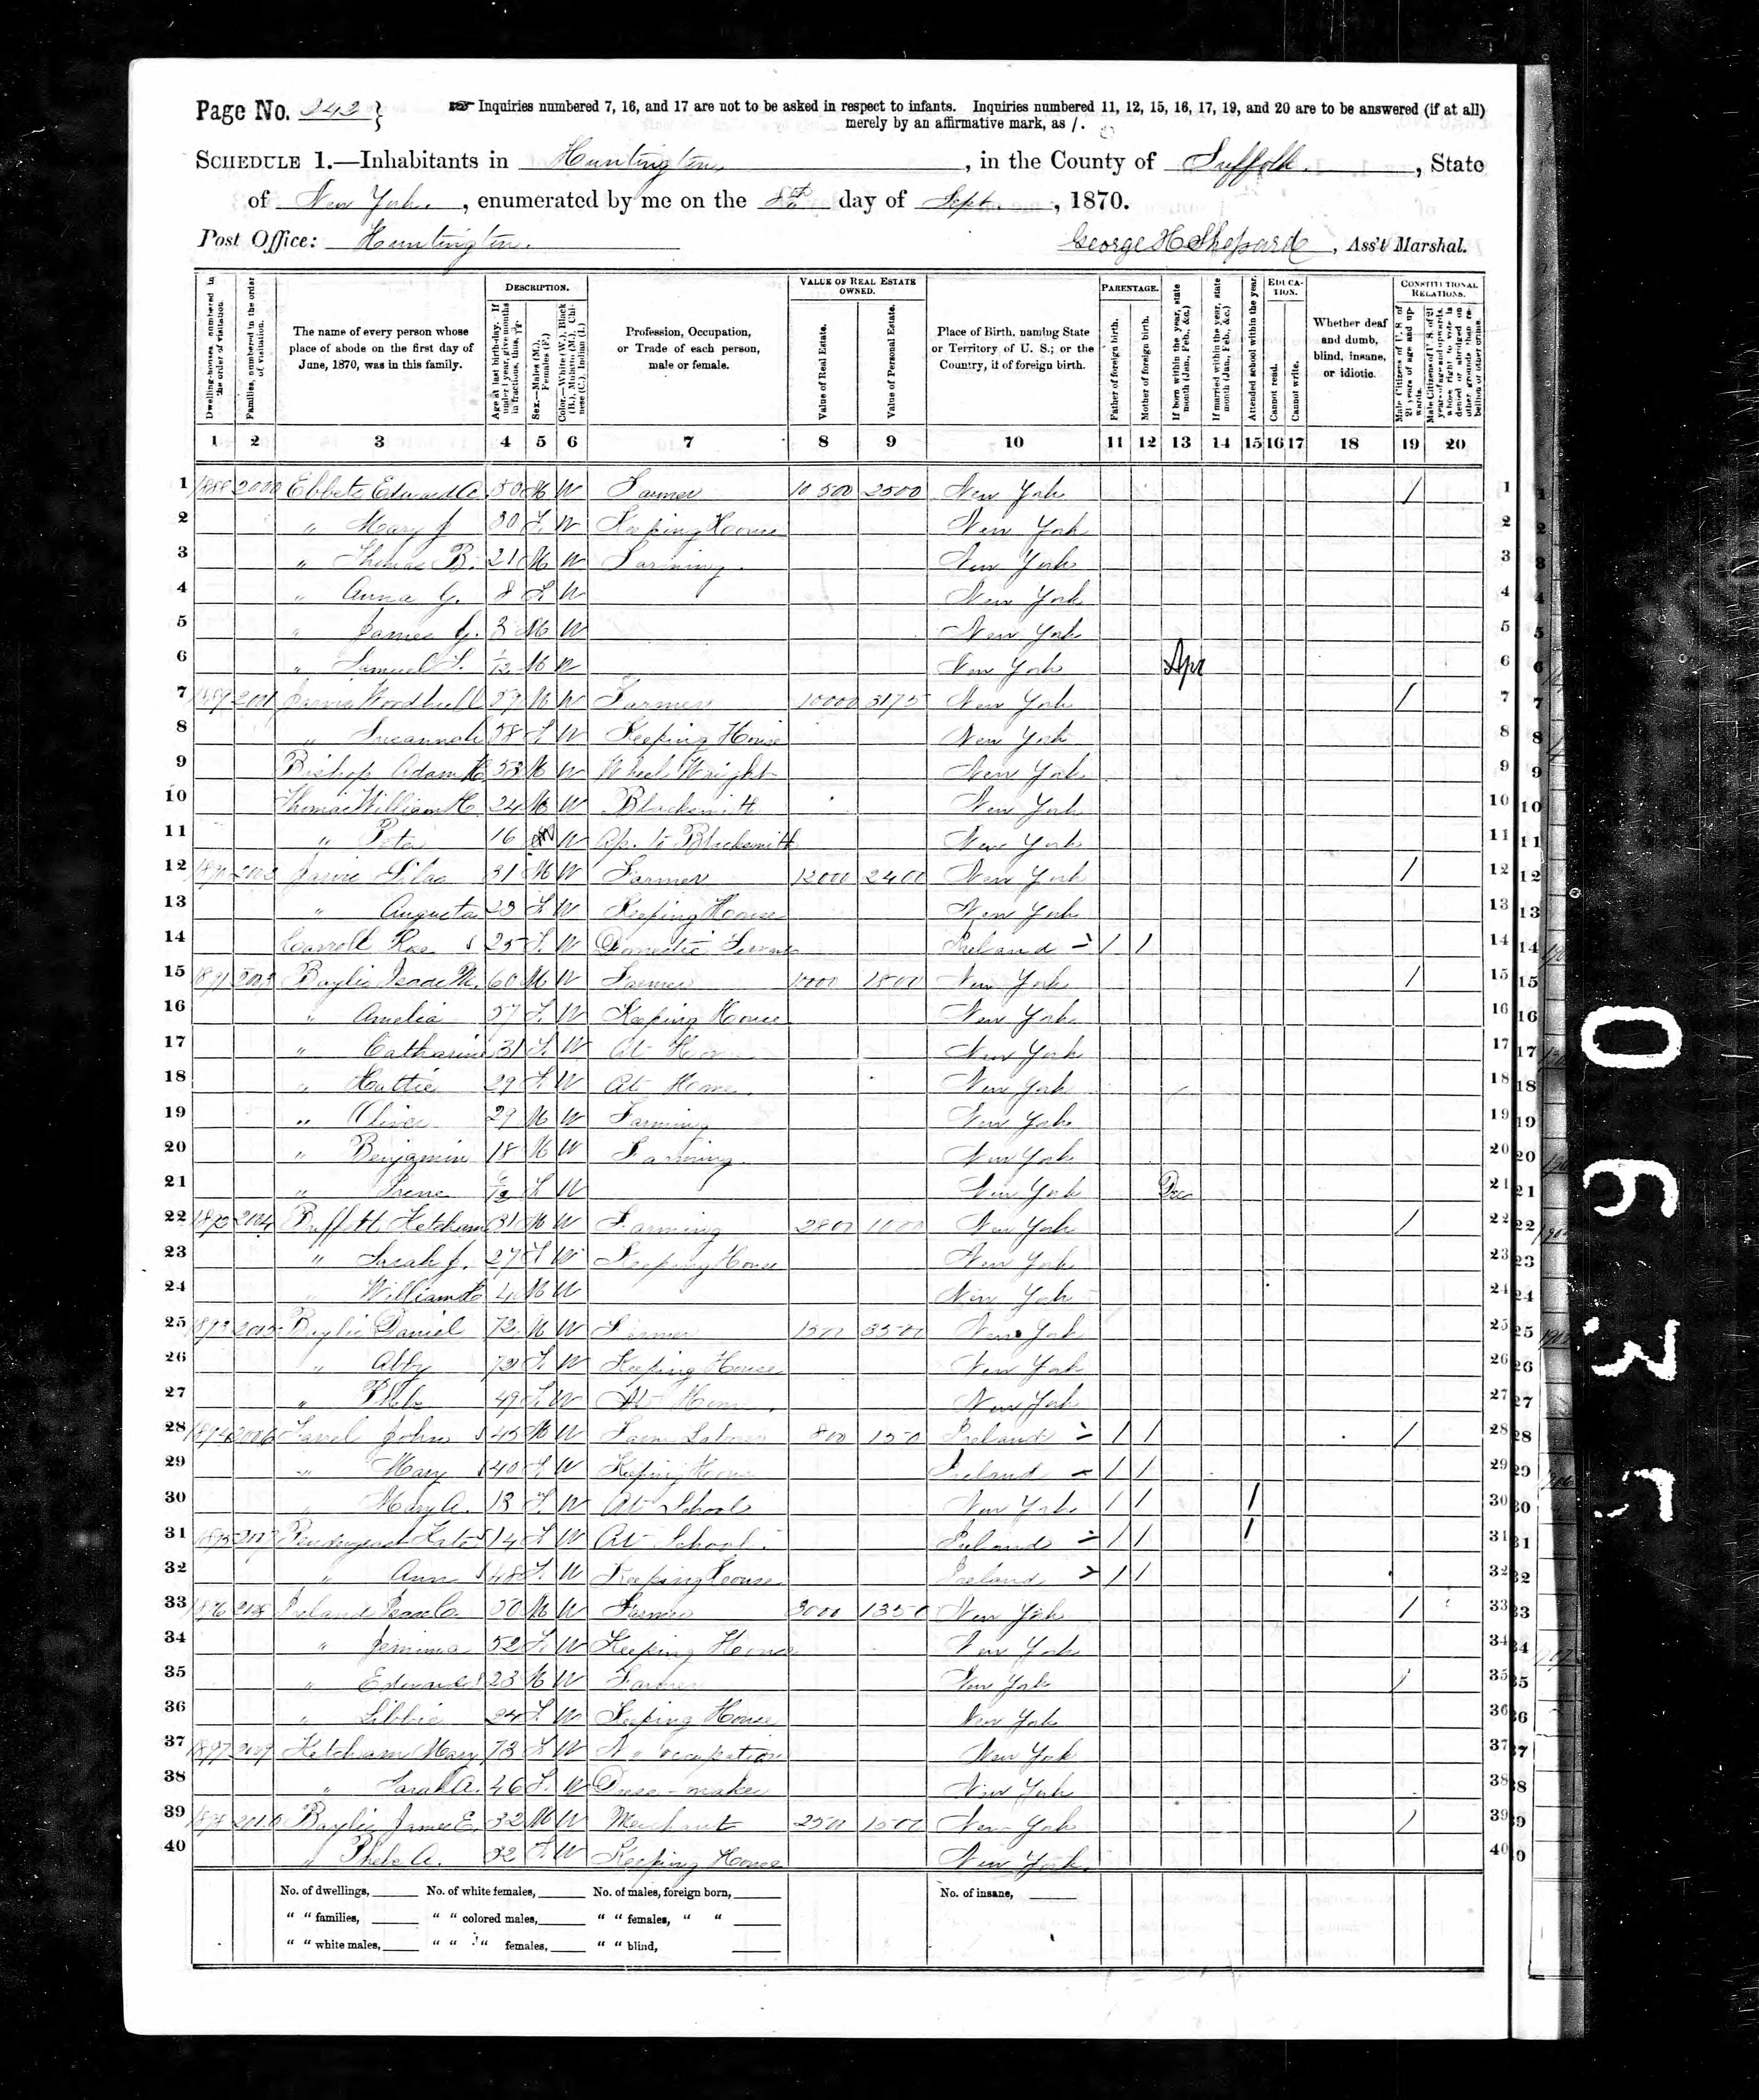 Page No. 242
☞ Inquiries numbered 7, 16, and 17 are not to be asked in respect to infants. Inquiries numbered 11, 12, 15, 16, 17, 19, and 20 are to be answered (if at all)
merely by an affirmative mark, as /.
SCHEDULE 1.—Inhabitants in Huntington, in the County of Suffolk, State
of New York, enumerated by me on the 8th day of Sept., 1870.
Post Office: Huntington.
George H Shepard, Ass't Marshal.
Dwelling-houses numbered in the order of visitation.
Families, numbered in the order of visitation.
The name of every person whose place of abode on the first day of June, 1870, was in this family.
DESCRIPTION.
Age at last birth-day. If under 1 year, give months in fractions, thus, 3/12.
Sex.—Males (M.), Females (F.)
Color.—White (W.), Black (B.), Mulatto (M.), Chinese (C.), Indian (I.)
Profession, Occupation, or Trade of each person, male or female.
VALUE OF REAL ESTATE OWNED.
Value of Real Estate.
Value of Personal Estate.
Place of Birth, naming State or Territory of U. S.; or the Country, if of foreign birth.
PARENTAGE.
Father of foreign birth.
Mother of foreign birth.
If born within the year, state month (Jan., Feb., &c.)
If married within the year, state month (Jan., Feb., &c.)
Attended school within the year.
EDUCATION.
Cannot read.
Cannot write.
Whether deaf and dumb, blind, insane, or idiotic.
CONSTITUTIONAL RELATIONS.
Male Citizens of U. S. of 21 years of age and upwards.
Male Citizens of U. S. of 21 years of age and upwards, whose right to vote is denied or abridged on other grounds than rebellion or other crime.
1 2 3 4 5 6 7 8 9 10 11 12 13 14 15 16 17 18 19 20
1 1888 2000 Ebbets Edward A. 50 M W Farmer 10 500 2500 New York / 1
2 " Mary J 30 F. W Keeping House New York 2
3 " Thomas B. 21 M W Farming. New York 3
4 " Anna G. 8 F W New York 4
5 " James G. 3 M W New York 5
6 " Samuel 1/12 M W New York Apr 6
7 1889 2001 Jarvis Woodhull 59 M W Farmer 10000 3175 New York / 7
8 " Susannah 58 F. W Keeping House New York 8
9 Bishop Adam 53 M W Wheel Wright New York 9
10 Thomas William H. 24 M W Blacksmith New York 10
11 " Peter 16 M W Ap. to Blacksmith New York 11
12 1890 2002 Jarvis Silas 31 M W Farmer 12000 2400 New York / 12
13 " Augusta 23 F. W Keeping House New York 13
14 Carroll Rose 25 F. W Domestic Servant Ireland / / 14
15 1891 2003 Baylis Isaac M. 60 M W Farmer 1000 1800 New York / 15
16 " Amelia 57 F. W Keeping House New York 16
17 " Catharine 31 F. W At Home New York 17
18 " Hattie 29 F. W At Home. New York 18
19 " Oliver 29 M W Farming New York 19
20 " Benjamin 18 M W Farming New York 20
21 " Irene 6/12 F W New York Dec 21
22 1892 2004 Buffett Ketcham 31 M W Farming 2800 1000 New York / 22
23 " Sarah J. 27 F W Keeping House New York 23
24 " William 4 M W New York 24
25 1893 2005 Baylis Daniel 72 M W Farmer 1500 3500 New York 25
26 " Abby 72 F. W Keeping House New York 26
27 " Phebe 49 F. W At Home. New York 27
28 1894 2006 Farrel John 45 M W Farm Laborer 800 150 Ireland / / / 28
29 " Mary 40 F W Keeping House Ireland / / 29
30 " Mary A. 13 F. W At School New York / / / 30
31 1895 2007 Pendergast Kate 14 F W At School. Ireland / / / 31
32 " Ann 48 F. W Keeping House Ireland / / 32
33 1896 2008 Ireland Isaac C. 50 M W Farmer 3000 1350 New York / 33
34 " Jemima 52 F. W Keeping House New York 34
35 " Edward 23 M W Farmer New York / 35
36 " Libbie 24 F. W Keeping House New York 36
37 1897 2009 Ketcham Mary 73 F W No occupation New York 37
38 " Sarah A. 46 F. W Dress-maker New York 38
39 1898 2010 Baylis James E. 32 M W Merchant 2500 1500 New York / 39
40 " Phebe A. 32 F. W Keeping House New York. 40
No. of dwellings, No. of white females, No. of males, foreign born, No. of insane,
" " families, " " colored males, " " females, " "
" " white males, " " " females, " " blind,
0635